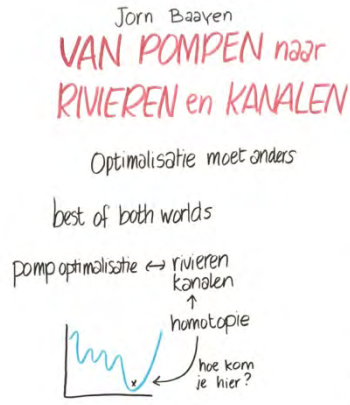 Jorn Baayen
VAN POMPEN naar
RIVIEREN en KANALEN
Optimalisatie moet anders
best of both worlds
pompoptimalisatie ↔ rivieren
kanalen
↑
homotopie
hoe kom
je hier?